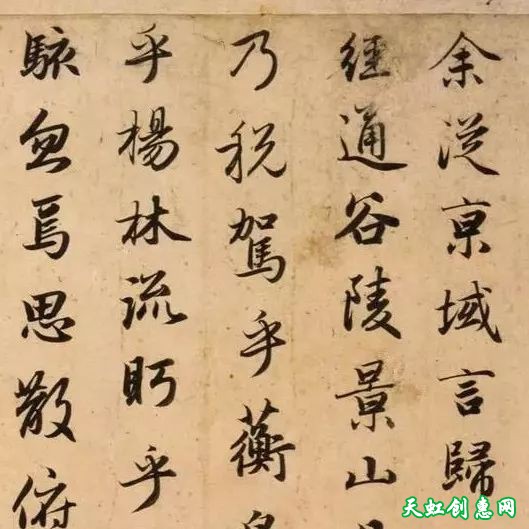 余從京域言歸
經通谷陵景山
乃税駕乎蘅
乎楊林流眄乎
駭忽焉思散俯
天虹创惠网